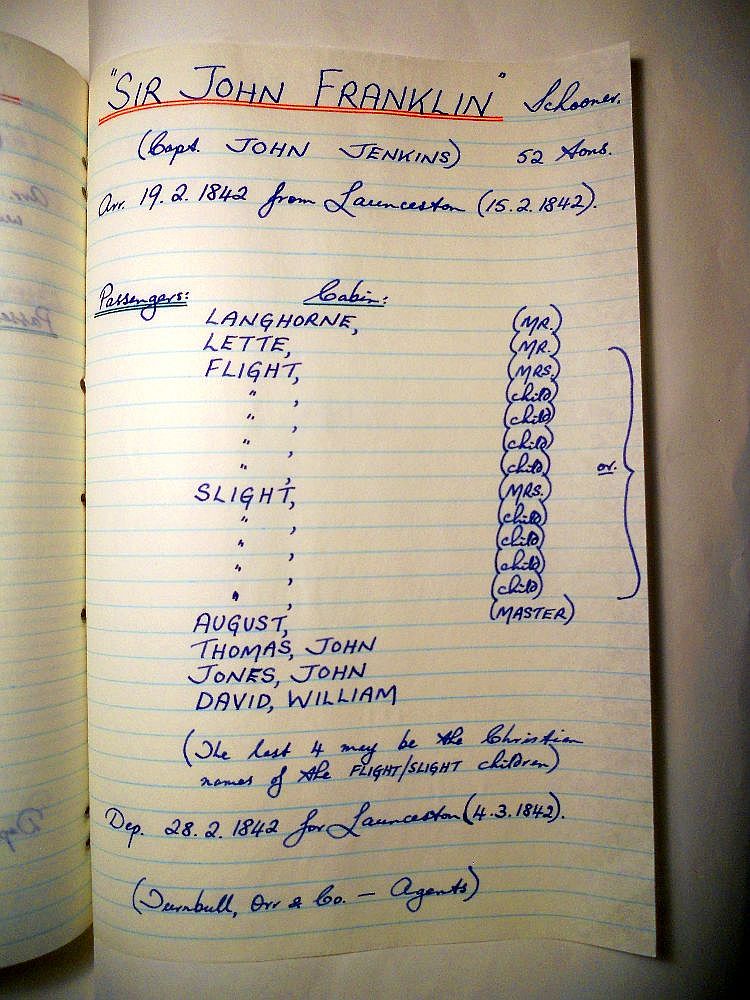 "SIR JOHN FRANKLIN" Schooner.
(Capt. JOHN JENKINS) 52 tons.
Arr. 19.2.1842 from Launceston (15.2.1842).
Passengers: Cabin:
LANGHORNE, (MR.)
LETTE, (MR.)
FLIGHT, (MRS.)
" , (child)
" , (child)
" , (child)
" , (child)
SLIGHT, (MRS.)
" , (child)
" , (child)
" , (child)
" , (child)
or.
AUGUST, (MASTER)
THOMAS, JOHN
JONES, JOHN
DAVID, WILLIAM
(The last 4 may be the Christian
names of the FLIGHT/SLIGHT children)
Dep. 28.2.1842 for Launceston (4.3.1842).
(Turnbull, Orr & Co. — Agents)